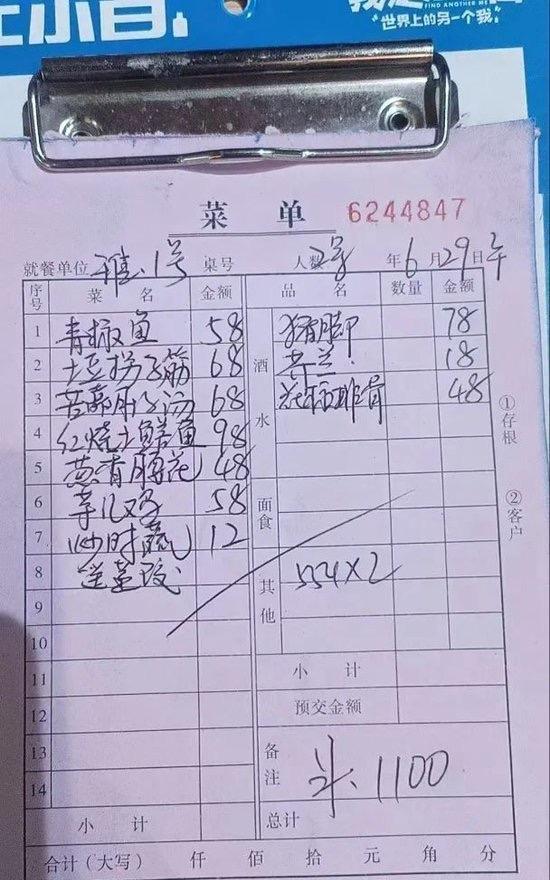 FIND ANOTHER ME
“世界上的另一个我”
菜 单 6244847
就餐单位 雅.1号 桌号 人数 2号 年 6 月 29 日 午
序号 菜 名 金额 品 名 数量 金额
1 青椒鱼 58 酒水 猪脚 78
2 土豆拐子筋 68 18
3 肚子汤 68 花椒排骨 48
4 红烧土鳝鱼 98
5 葱香腰花 48
6 58 面食
7 炒时蔬 12
8 送 其他 554×2
9
10
11 小 计
12 预交金额
13 备注 1100
14
小 计 总计
合计（大写） 仟 佰 拾 元 角 分
①存根
②客户